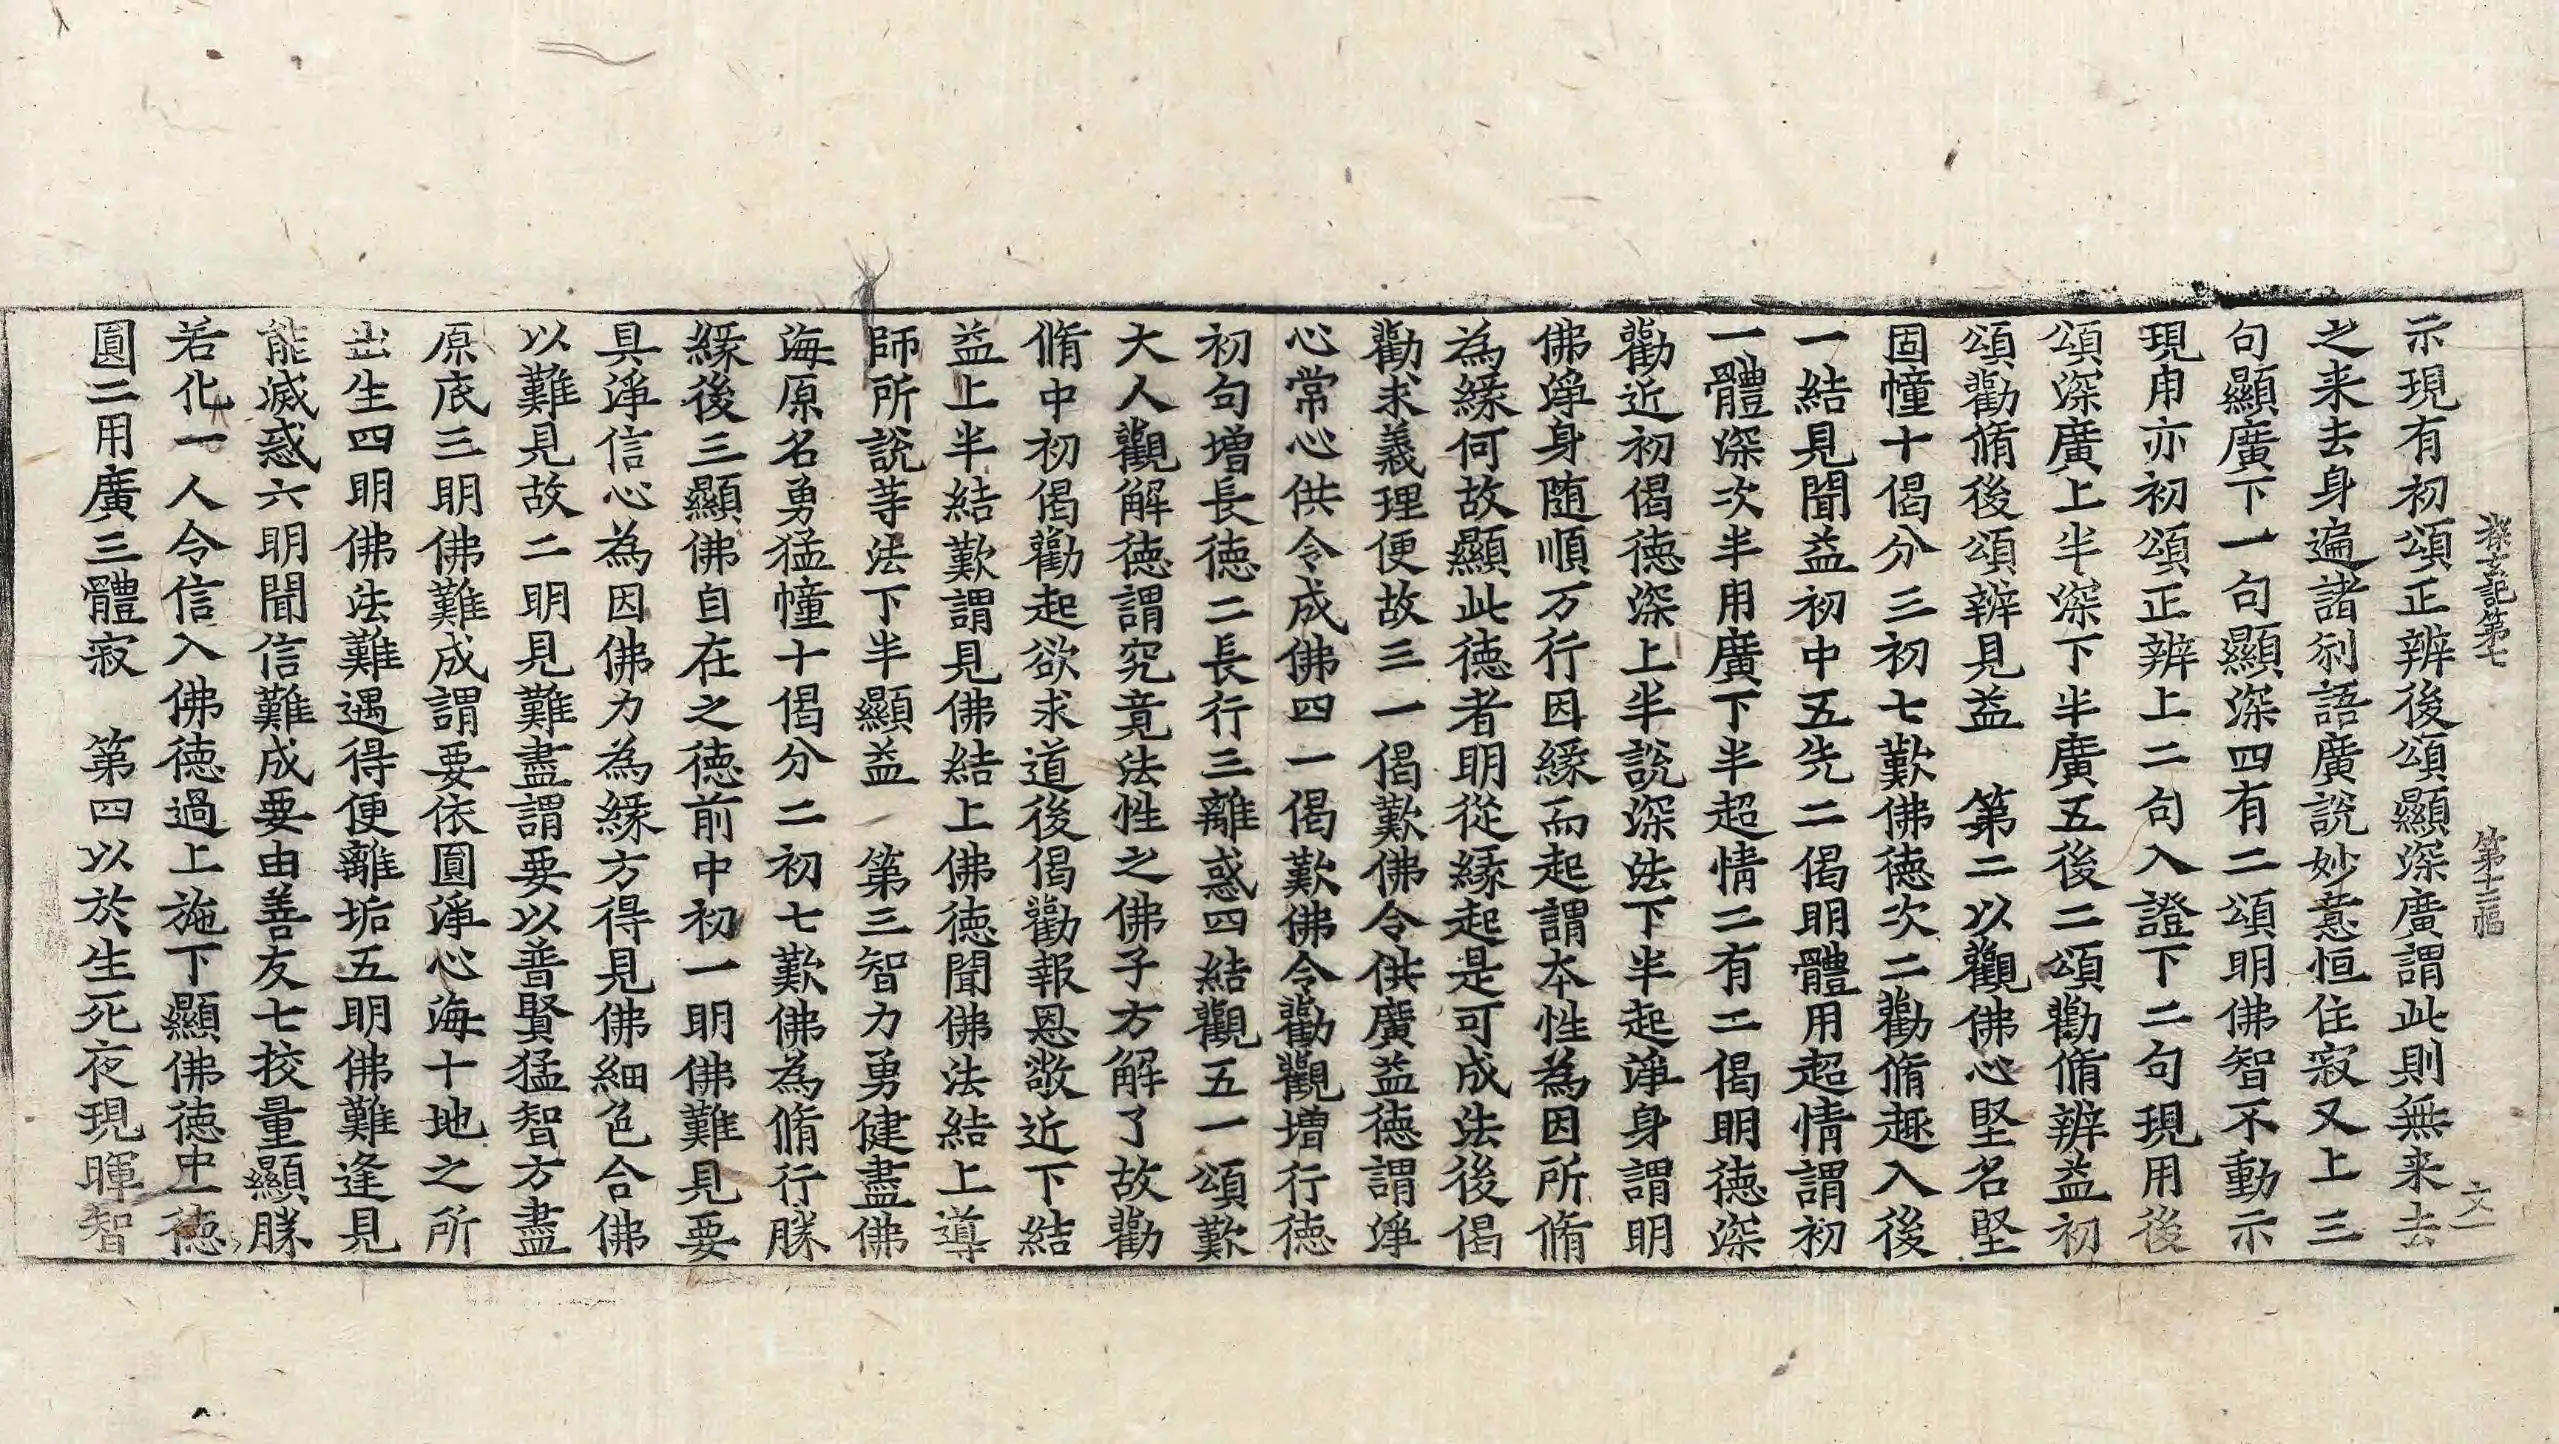 探玄記第七 第十二幅 文一
示現有初頌正辨後頌顯深廣謂此則無来去
之来去身遍諸刹語廣說妙意恒住寂又上三
句顯廣下一句顯深四有二頌明佛智不動示
現用亦初頌正辨上二句入證下二句現用後
頌深廣上半深下半廣五後二頌勸脩辨益初
頌勸脩後頌辨見益 第二以觀佛心堅名堅
固幢十偈分三初七歎佛德次二勸脩趣入後
一結見聞益初中五先二偈明體用超情謂初
一體深次半用廣下半超情二有二偈明德深
勸近初偈德深上半說深法下半起淨身謂明
佛淨身随順万行因緣而起謂本性為因所脩
為緣何故顯此德者明從緣起是可成法後偈
勸求義理便故三一偈歎佛令供廣益德謂淨
心常心供令成佛四一偈歎佛令勸觀增行德
初句增長德二長行三離惑四結觀五一頌歎
大人觀解德謂究竟法性之佛子方解了故勸
脩中初偈勸起欲求道後偈勸報恩敬近下結
益上半結歎謂見佛結上佛德聞佛法結上導
師所說等法下半顯益 第三智力勇健盡佛
海原名勇猛幢十偈分二初七歎佛為脩行勝
緣後三顯佛自在之德前中初一明佛難見要
具淨信心為因佛力為緣方得見佛細色合佛
以難見故二明見難盡謂要以普賢猛智方盡
原底三明佛難成謂要依圓淨心海十地之所
出生四明佛法難遇得便離垢五明佛難逢見
能滅惑六明聞信難成要由善友七挍量顯勝
若化一人令信入佛德過上施下顯佛德中一德
圓二用廣三體寂 第四以於生死夜現暉智